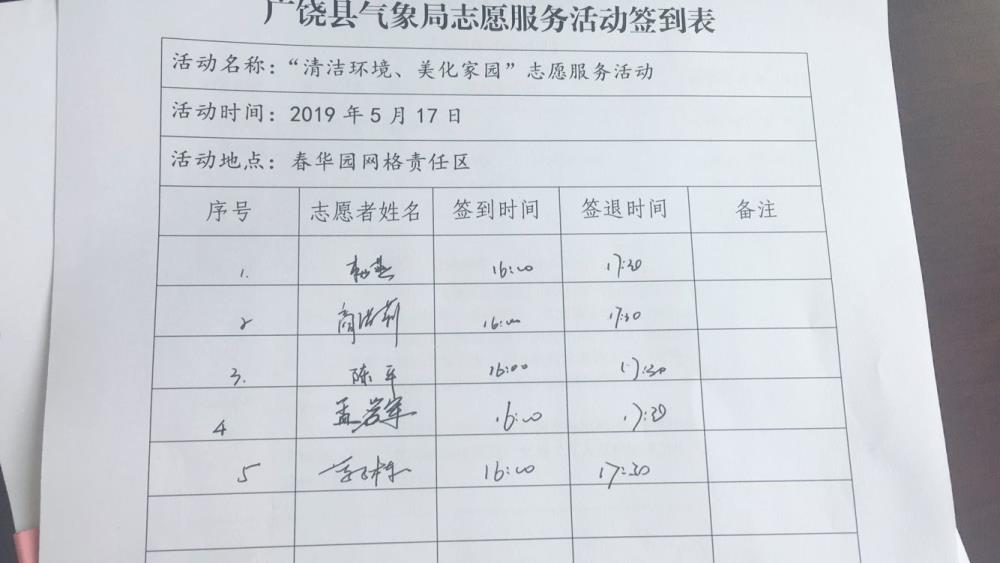 广饶县气象局志愿服务活动签到表
活动名称：“清洁环境、美化家园”志愿服务活动
活动时间：2019 年 5 月 17 日
活动地点：春华园网格责任区
序号 志愿者姓名 签到时间 签退时间 备注
1. 16:00 17:30
2 16:00 17:30
3. 陈平 16:00 17:30
4 16:00 17:30
5 16:00 17:30